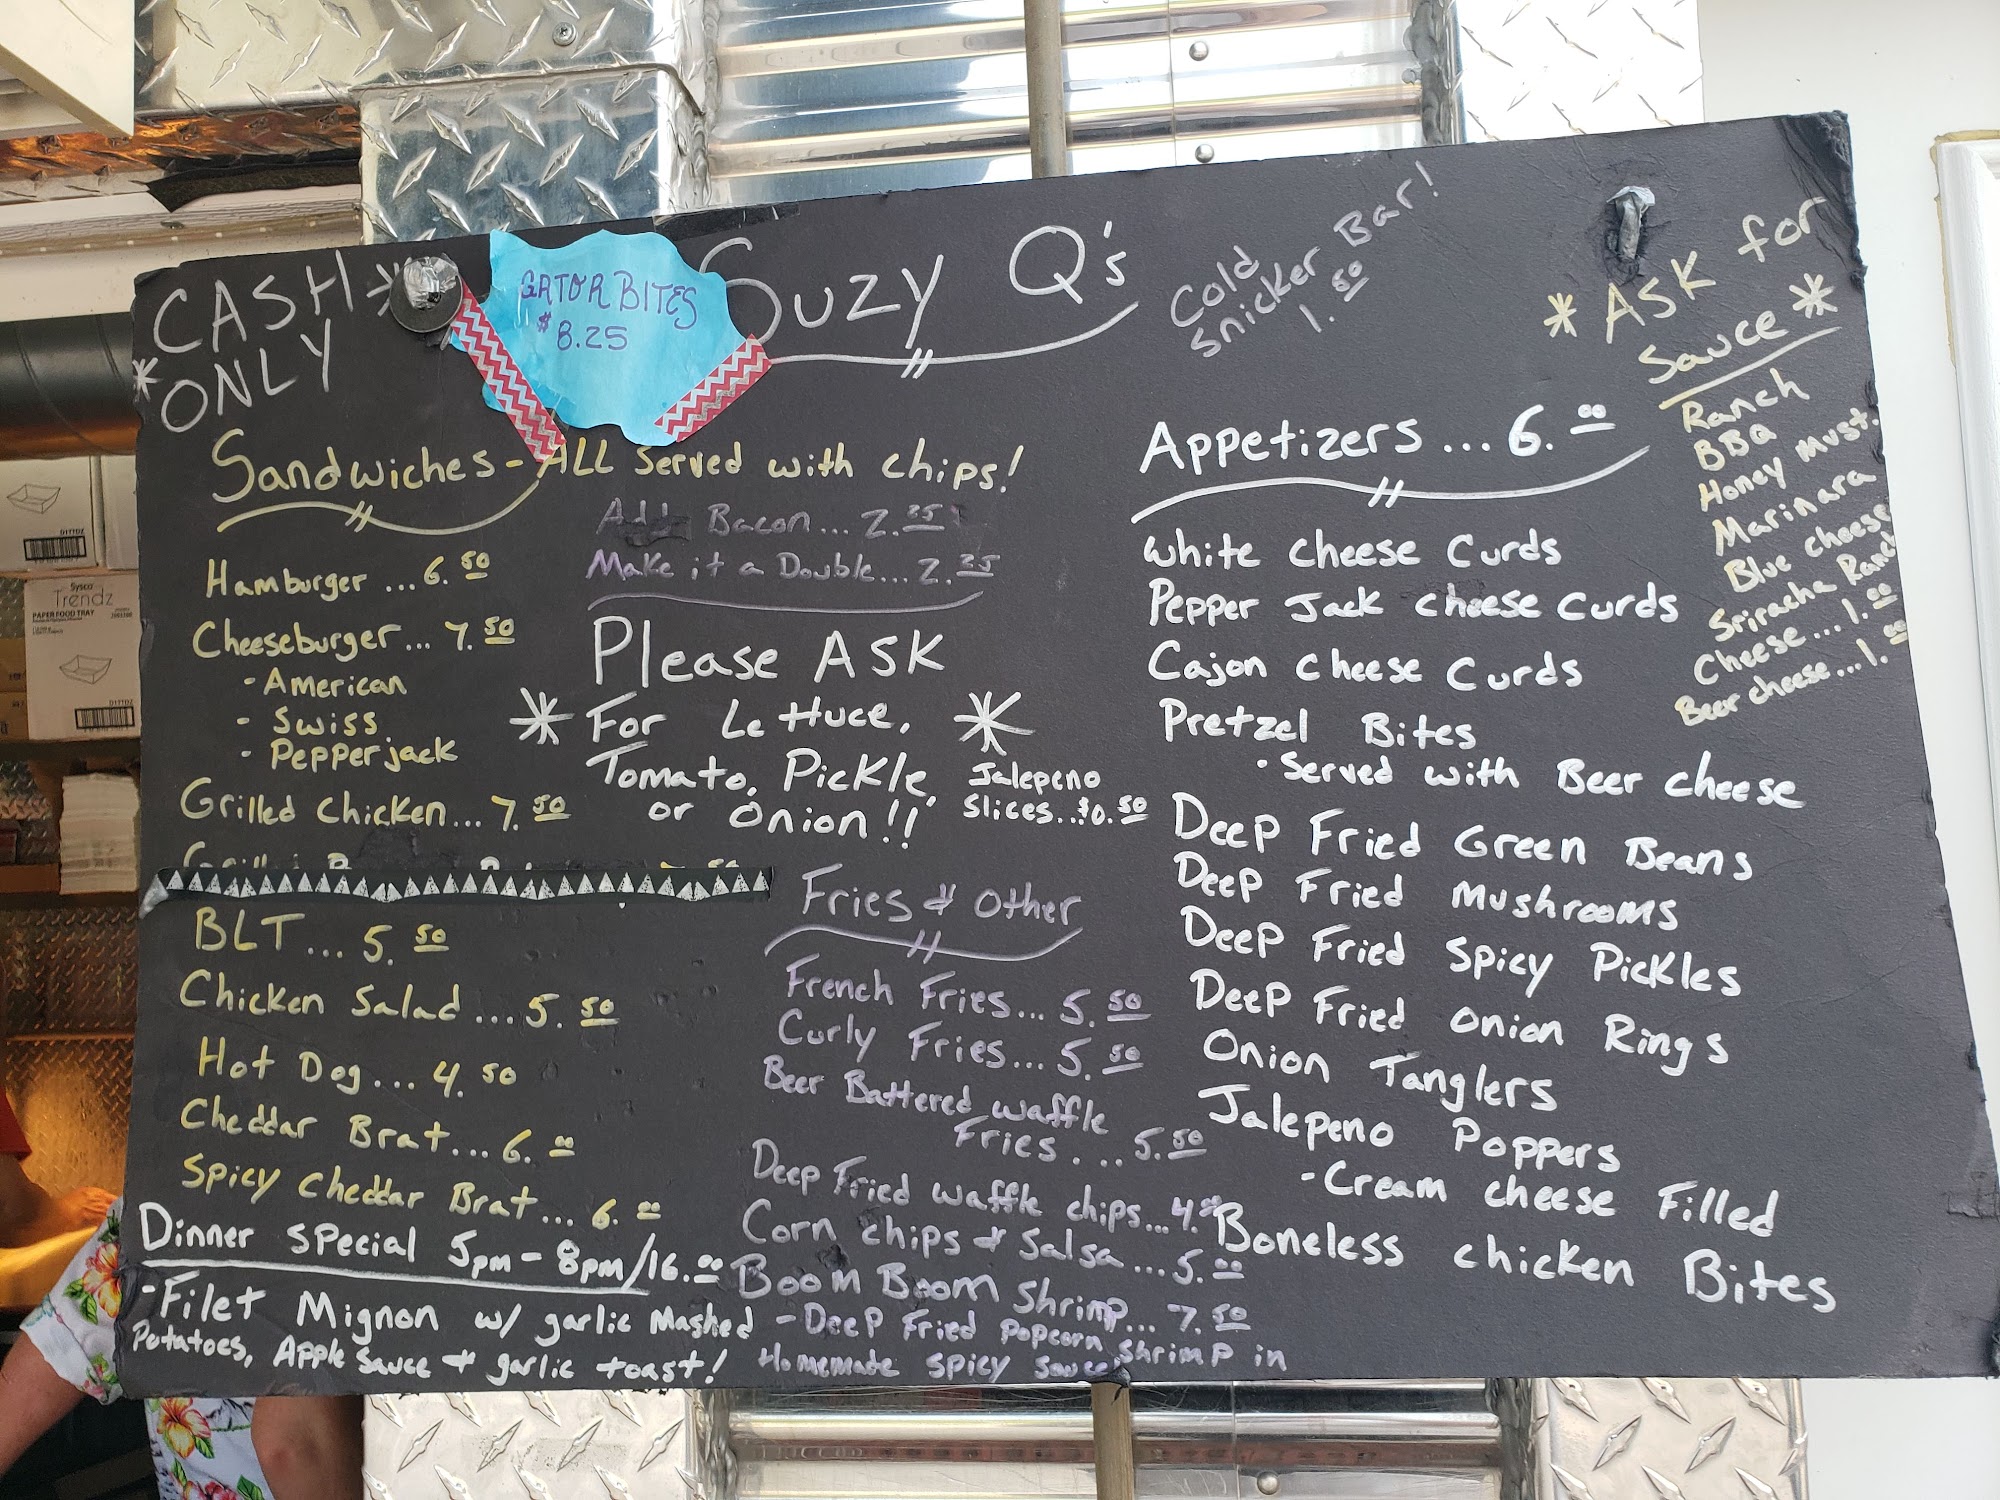 CASH *
* ONLY
GATOR BITES
$ 8.25
Suzy Q's
Cold
Snicker Bar!
1.50
* ASK for
Sauce *
Ranch
BBQ
Honey Must.
Marinara
Blue cheese
Sriracha Ranch
Cheese...1.00
Beer cheese...1.00
Sandwiches - ALL Served with chips!
Add Bacon...2.25
Make it a Double...2.25
Hamburger...6.50
Cheeseburger...7.50
- American
- Swiss
- Pepperjack
Grilled Chicken...7.50
BLT...5.50
Chicken Salad...5.50
Hot Dog...4.50
Cheddar Brat...6.00
Spicy Cheddar Brat...6.00
Dinner Special 5pm-8pm/16.00
- Filet Mignon w/ garlic Mashed
Potatoes, Apple Sauce & garlic toast!
Please ASK
* For Lettuce, *
Tomato, Pickle,
or Onion!!
Jalepeno
Slices...$0.50
Fries & Other
French Fries...5.50
Curly Fries...5.50
Beer Battered Waffle
Fries....5.50
Deep Fried Waffle chips...4.00
Corn chips & Salsa...5.00
Boom Boom Shrimp...7.50
- Deep Fried popcorn shrimp in
Homemade spicy sauce
Appetizers...6.00
White Cheese Curds
Pepper Jack Cheese Curds
Cajon Cheese Curds
Pretzel Bites
- Served with Beer Cheese
Deep Fried Green Beans
Deep Fried Mushrooms
Deep Fried Spicy Pickles
Deep Fried Onion Rings
Onion Tanglers
Jalepeno Poppers
- Cream cheese Filled
Boneless chicken Bites
Sysco
Trendz
PAPER FOOD TRAY